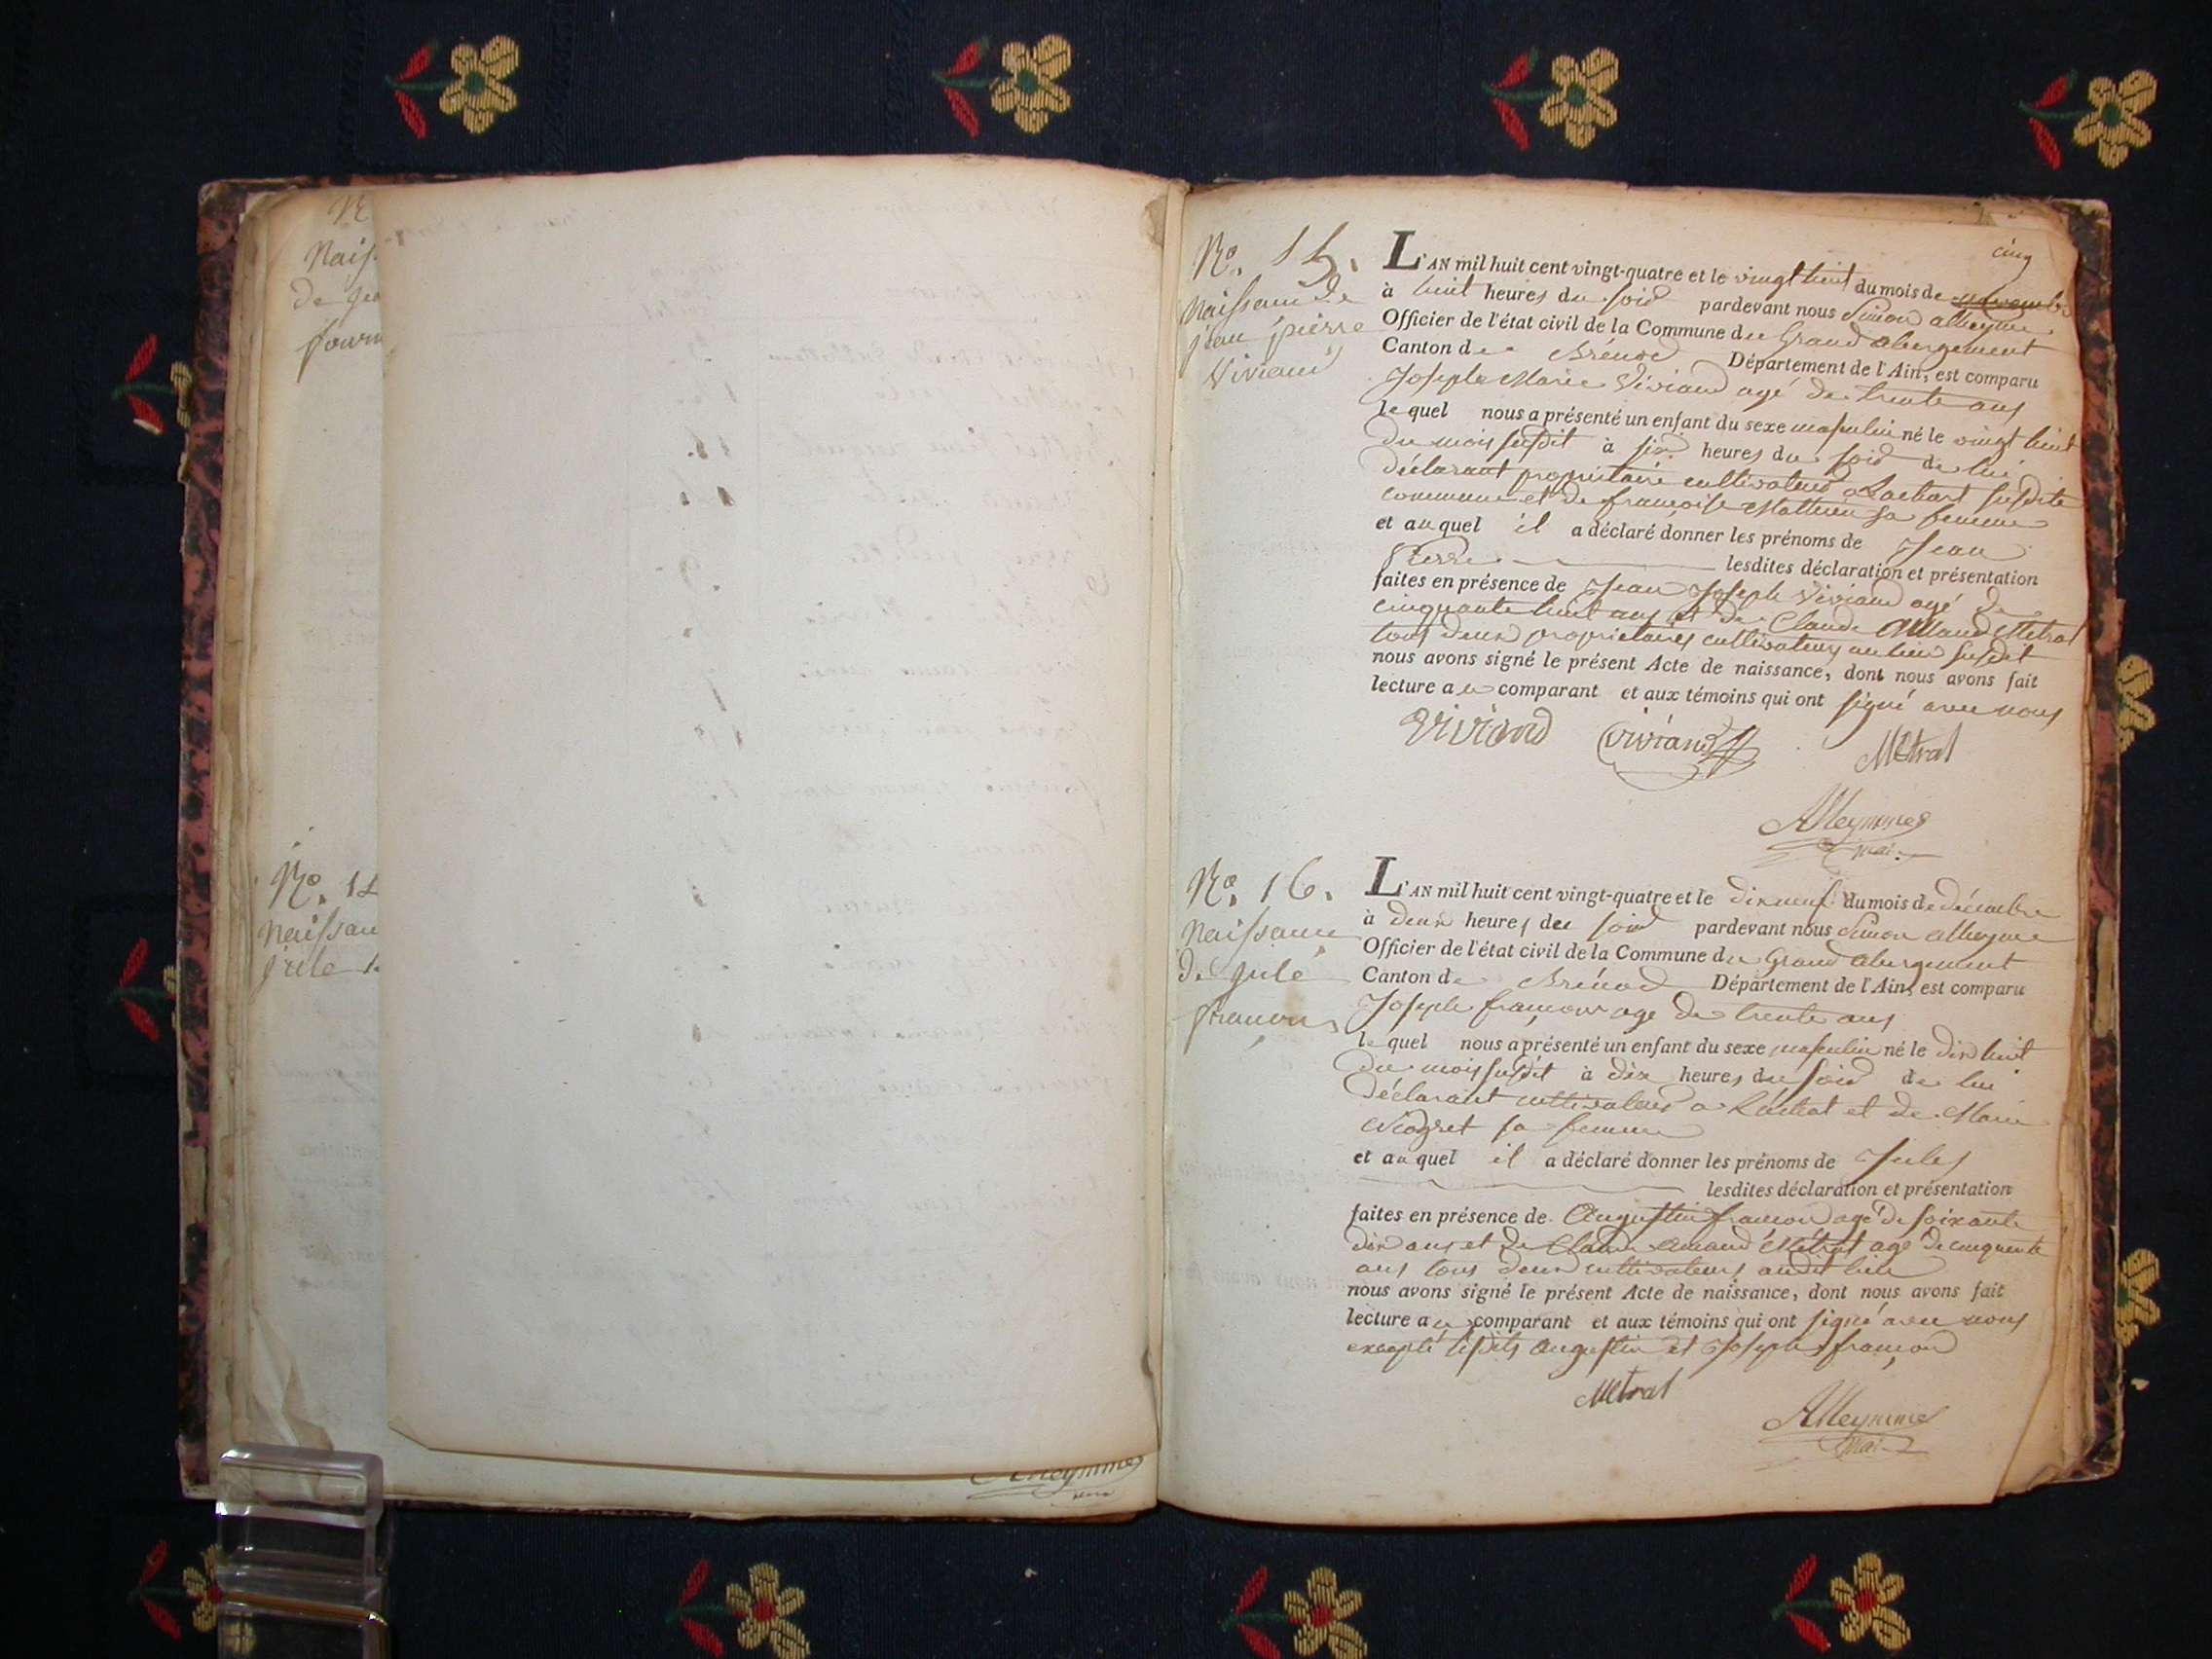 N
Naiss
de je
fourn
No. 14
Naissan
jule
Alleymme
cinq
No. 15.
Naissan de
jean pierre
Viviand
L'AN mil huit cent vingt-quatre et le vingt huit du mois de novembre
à huit heures du soir pardevant nous Simon alleyme
Officier de l'état civil de la Commune du Grand abergement
Canton de Brénod Département de l'Ain, est comparu
Joseph Marie Viviand agé de trente ans
lequel nous a présenté un enfant du sexe masculin né le vingt huit
du mois susdit à six heures du soir de lui
déclarant propriétaire cultivateur a Lachat susdite
commune et de françoise Mathieu sa femme
et auquel il a déclaré donner les prénoms de Jean
Pierre lesdites déclaration et présentation
faites en présence de Jean Joseph Viviand agé de
cinquante huit ans et de Claude Amand Metral
tous deux propriétaires cultivateurs au lieu susdit
nous avons signé le présent Acte de naissance, dont nous avons fait
lecture au comparant et aux témoins qui ont signé avec nous
Viviand Viviand Metral
Alleymme
mai.
No. 16.
Naissance
de jule
françon
L'AN mil huit cent vingt-quatre et le dix neuf du mois de décembre
à deux heures du soir pardevant nous Simon alleyme
Officier de l'état civil de la Commune du Grand abergement
Canton de Brénod Département de l'Ain, est comparu
Joseph françon age de trente ans
lequel nous a présenté un enfant du sexe masculin né le dix huit
du mois susdit à dix heures du soir de lui
déclarant cultivateur a Lachat et de Marie
sa femme
et auquel il a déclaré donner les prénoms de Jules
lesdites déclaration et présentation
faites en présence de Augustin françon agé de soixante
dix ans et de Claude amand Métral agé de cinquante
ans tous deux cultivateurs audit lieu
nous avons signé le présent Acte de naissance, dont nous avons fait
lecture au comparant et aux témoins qui ont signé avec nous
excepté lesdits Augustin et Joseph françon
Metral
Alleymme
mai.